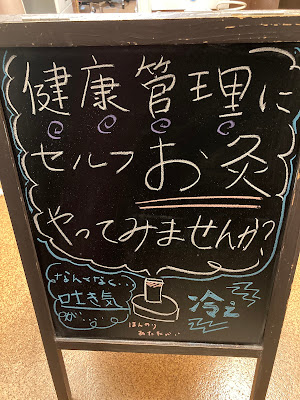 健康管理に
セルフお灸
やってみませんか?
なんとなく..
吐き気
が....
冷え
ほんのり
あたたかい..